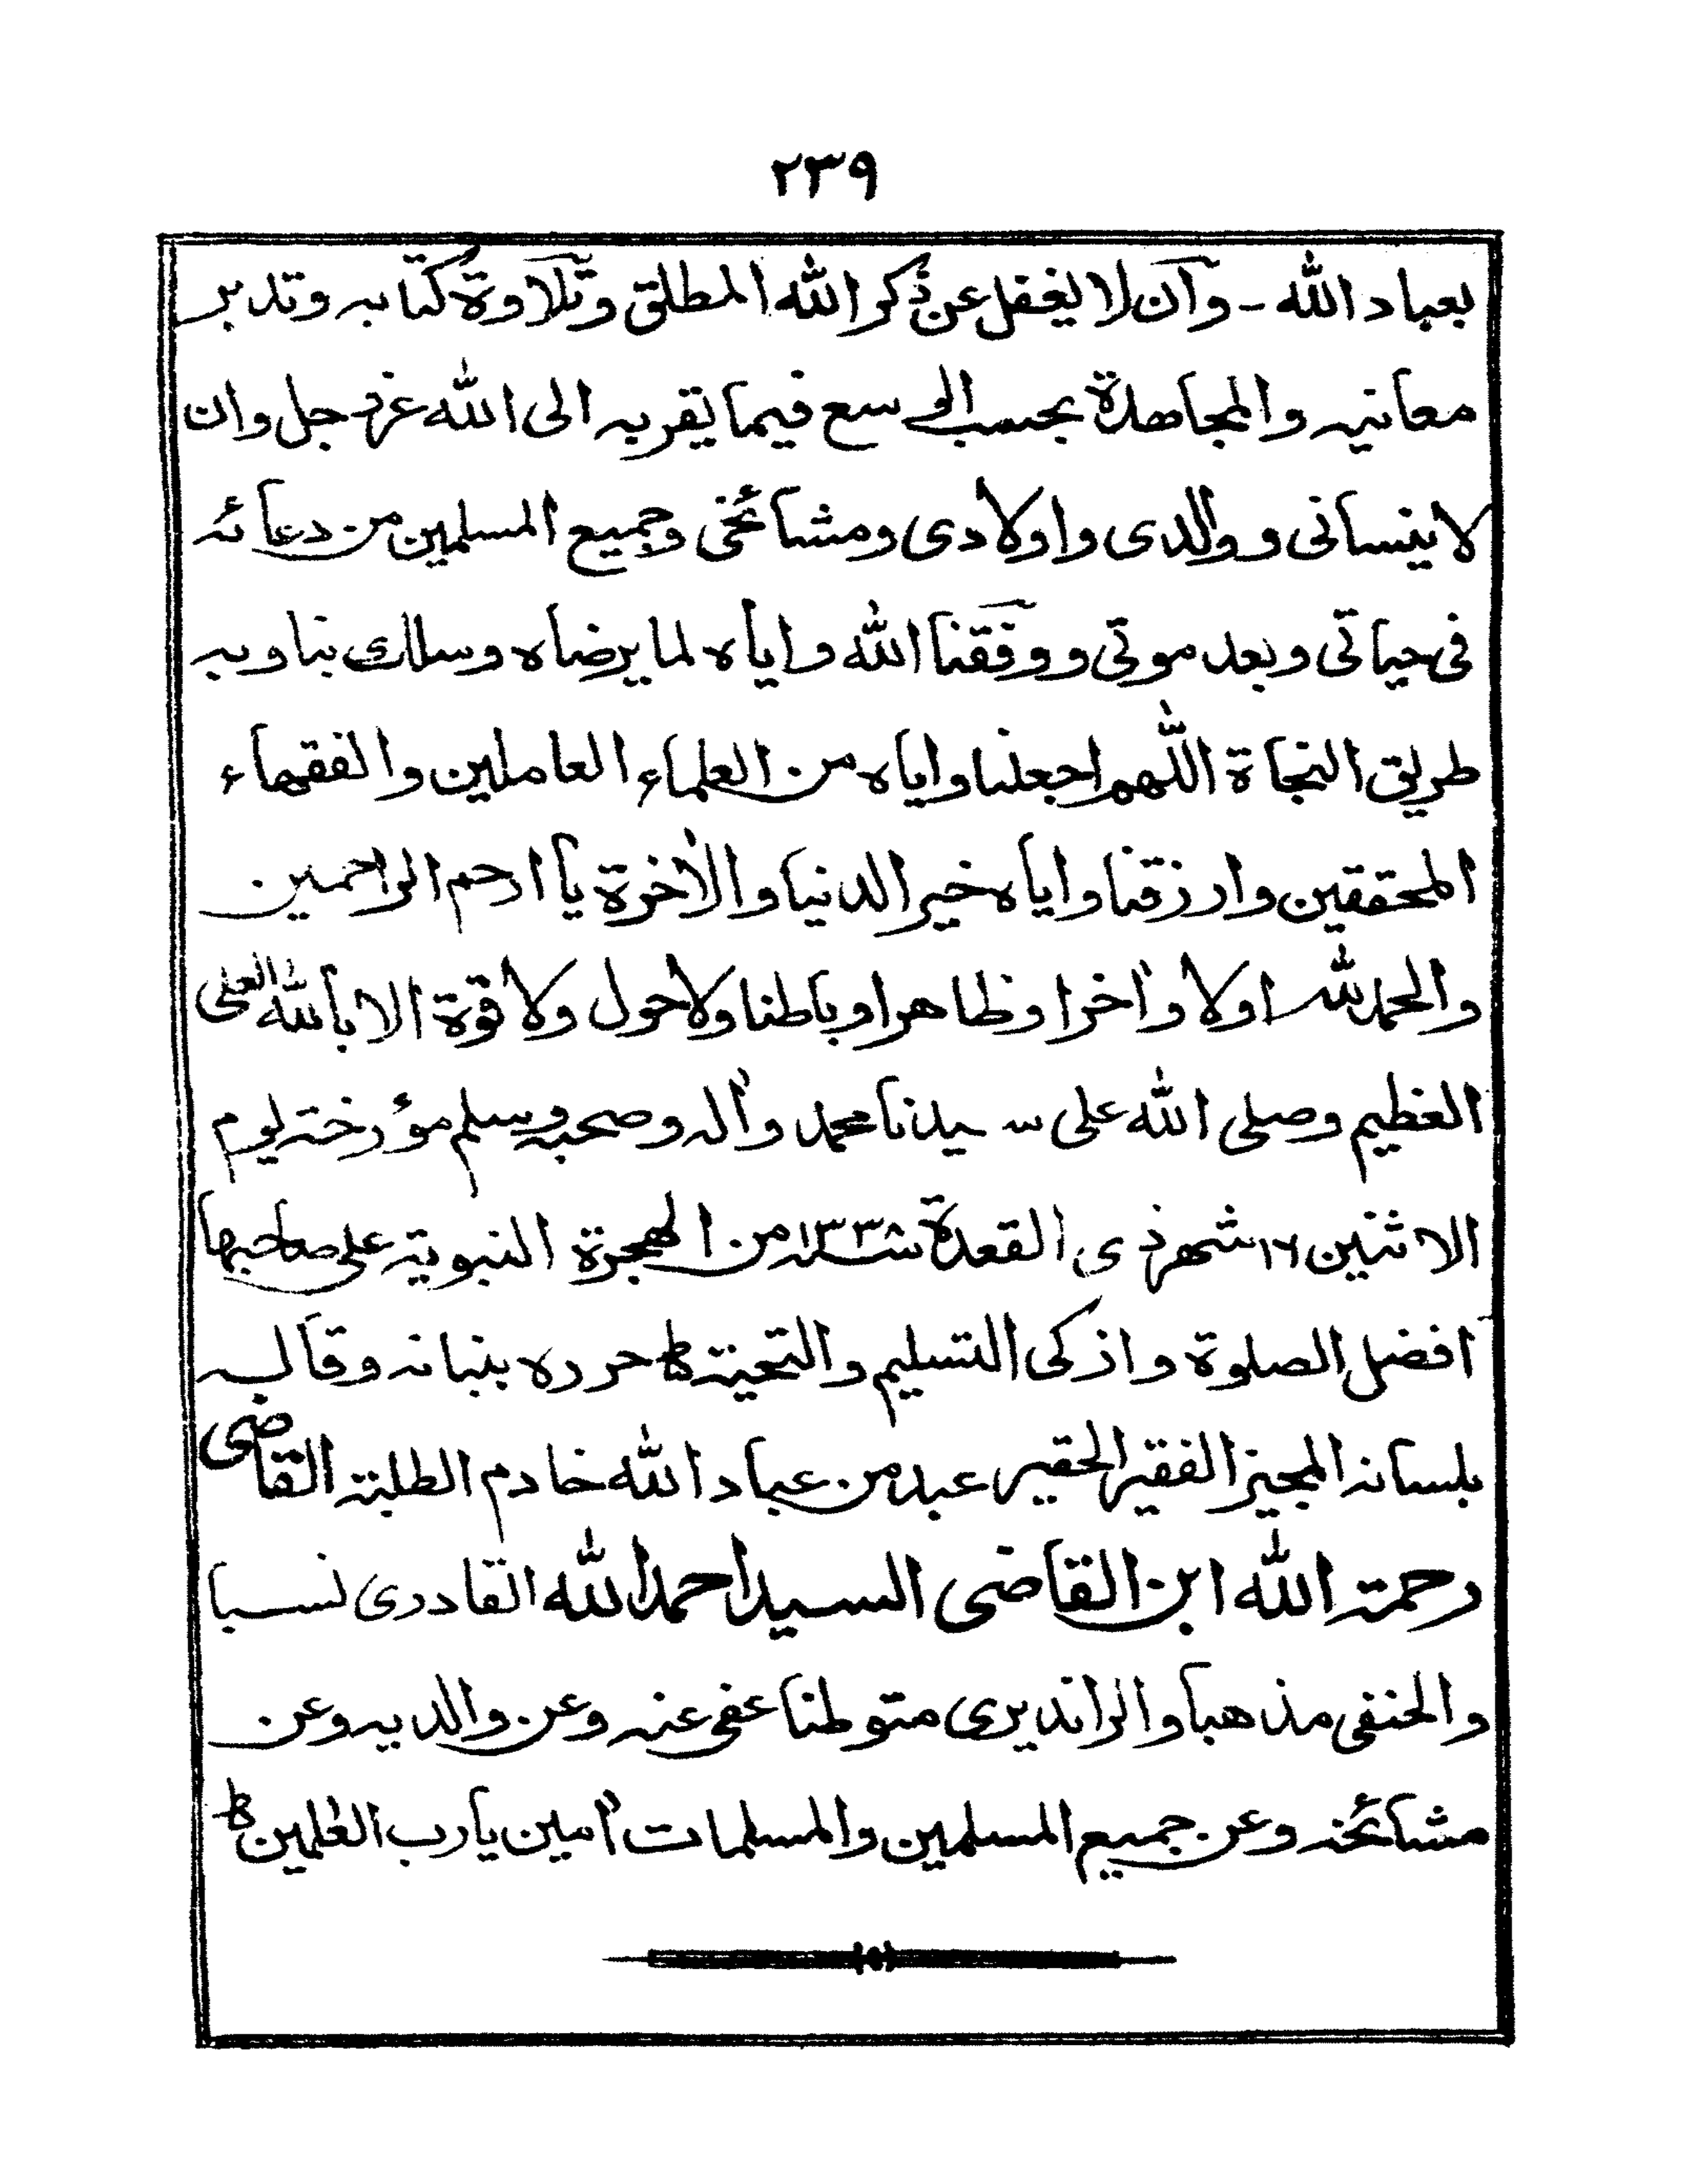 ٢٣٩
بعباد الله - وان لا يغفل عن ذكر الله المطلق وتلاوة كتابه وتدبر
معانيه والمجاهدة بحسب الوسع فيما يقربه الى الله عز وجل وان
لا ينساني ووالدي واولادي ومشائخي وجميع المسلمين من دعائه
في حياتي وبعد موتي ووفقنا الله واياه لما يرضاه وسلك بنا وبه
طريق النجاة اللهم اجعلنا واياه من العلماء العاملين والفقهاء
المحققين وارزقنا واياه خير الدنيا والاٰخرة يا ارحم الراحمين
والحمد لله اولا واٰخرا وظاهرا وباطنا ولا حول ولا قوة الا بالله العلى
العظيم وصلى الله على سيدنا محمد واٰله وصحبه وسلم مؤرخة يوم
الاثنين ١٦ شهر ذى القعدة سنة ١٣٣٨ من الهجرة النبوية على صاحبها
افضل الصلوة وازكى التسليم والتحية ط حرره ببنانه وقاله
بلسانه المجيز الفقير الحقير عبد من عباد الله خادم الطلبة القاضى
رحمة الله ابن القاضى السيد احمد الله القادرى نسبا
والحنفى مذهبا والراندیری متوطنا عفى عنه وعن والديه وعن
مشائخه وعن جميع المسلمين والمسلمات اٰمين يارب العٰلمين ط